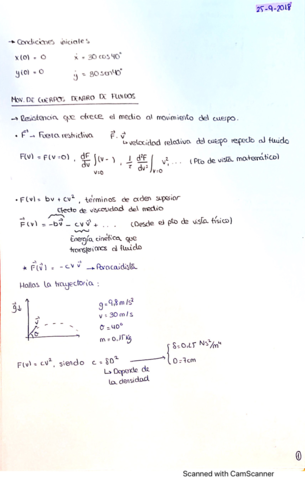 25-9-2018
→ Condiciones iniciales
x(0) = 0 ẋ = 30 cos 40°
y(0) = 0 ẏ = 30 sen 40°
MOV. DE CUERPOS DENTRO DE FLUIDOS
→ Resistencia que ofrece el medio al movimiento del cuerpo.
• F → Fuerza restrictiva F̄. v̄
↳ velocidad relativa del cuerpo respecto al fluido
F(v) = F(v=0), dF/dv |v=0 (v-), 1/2 d²F/dv² |v=0 v², ... (Pto de vista matemático)
• F(v) = bv + cv², términos de orden superior
efecto de viscosidad del medio
F⃗(v) = -bv⃗ - cv v⃗ + ... (Desde el pto de vista físico)
Energía cinética que
transferimos al fluido
* F⃗(v⃗) = -cv v⃗ → Paracaidista
Hallas la trayectoria:
g = 9,8 m/s²
v = 30 m/s
θ = 40°
m = 0.15 kg
F(v) = cv², siendo c = γD² → { γ = 0.25 Ns²/m⁴
D = 7cm
↳ Depende de
la densidad
①
Scanned with CamScanner